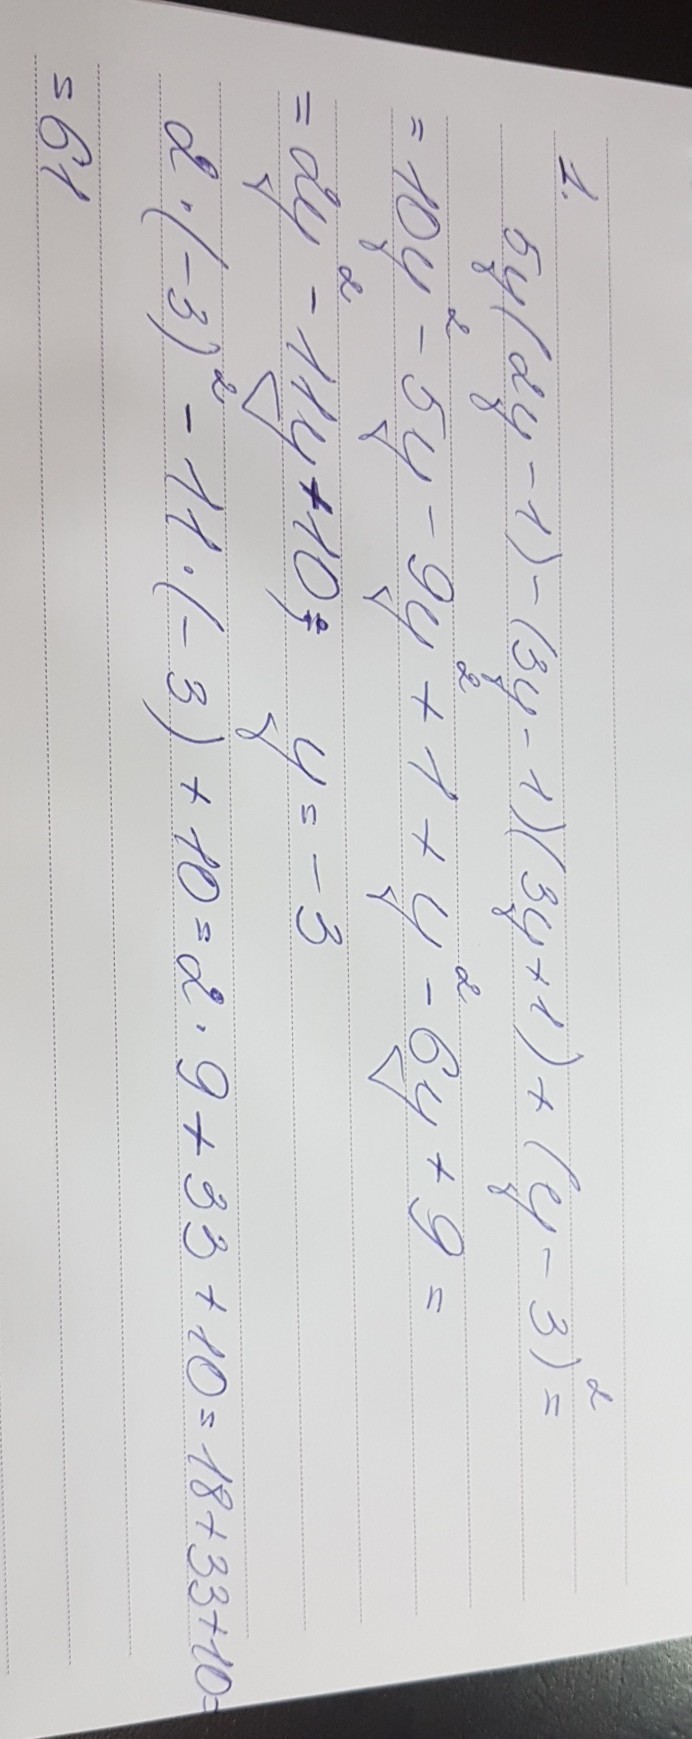 1.
5y(2y-1)-(3y-1)(3y+1)+(y-3)²=
=10y²-5y-9y²+1+y²-6y+9=
=2y²-11y+10; y=-3
2·(-3)²-11·(-3)+10=2·9+33+10=18+33+10=
=61